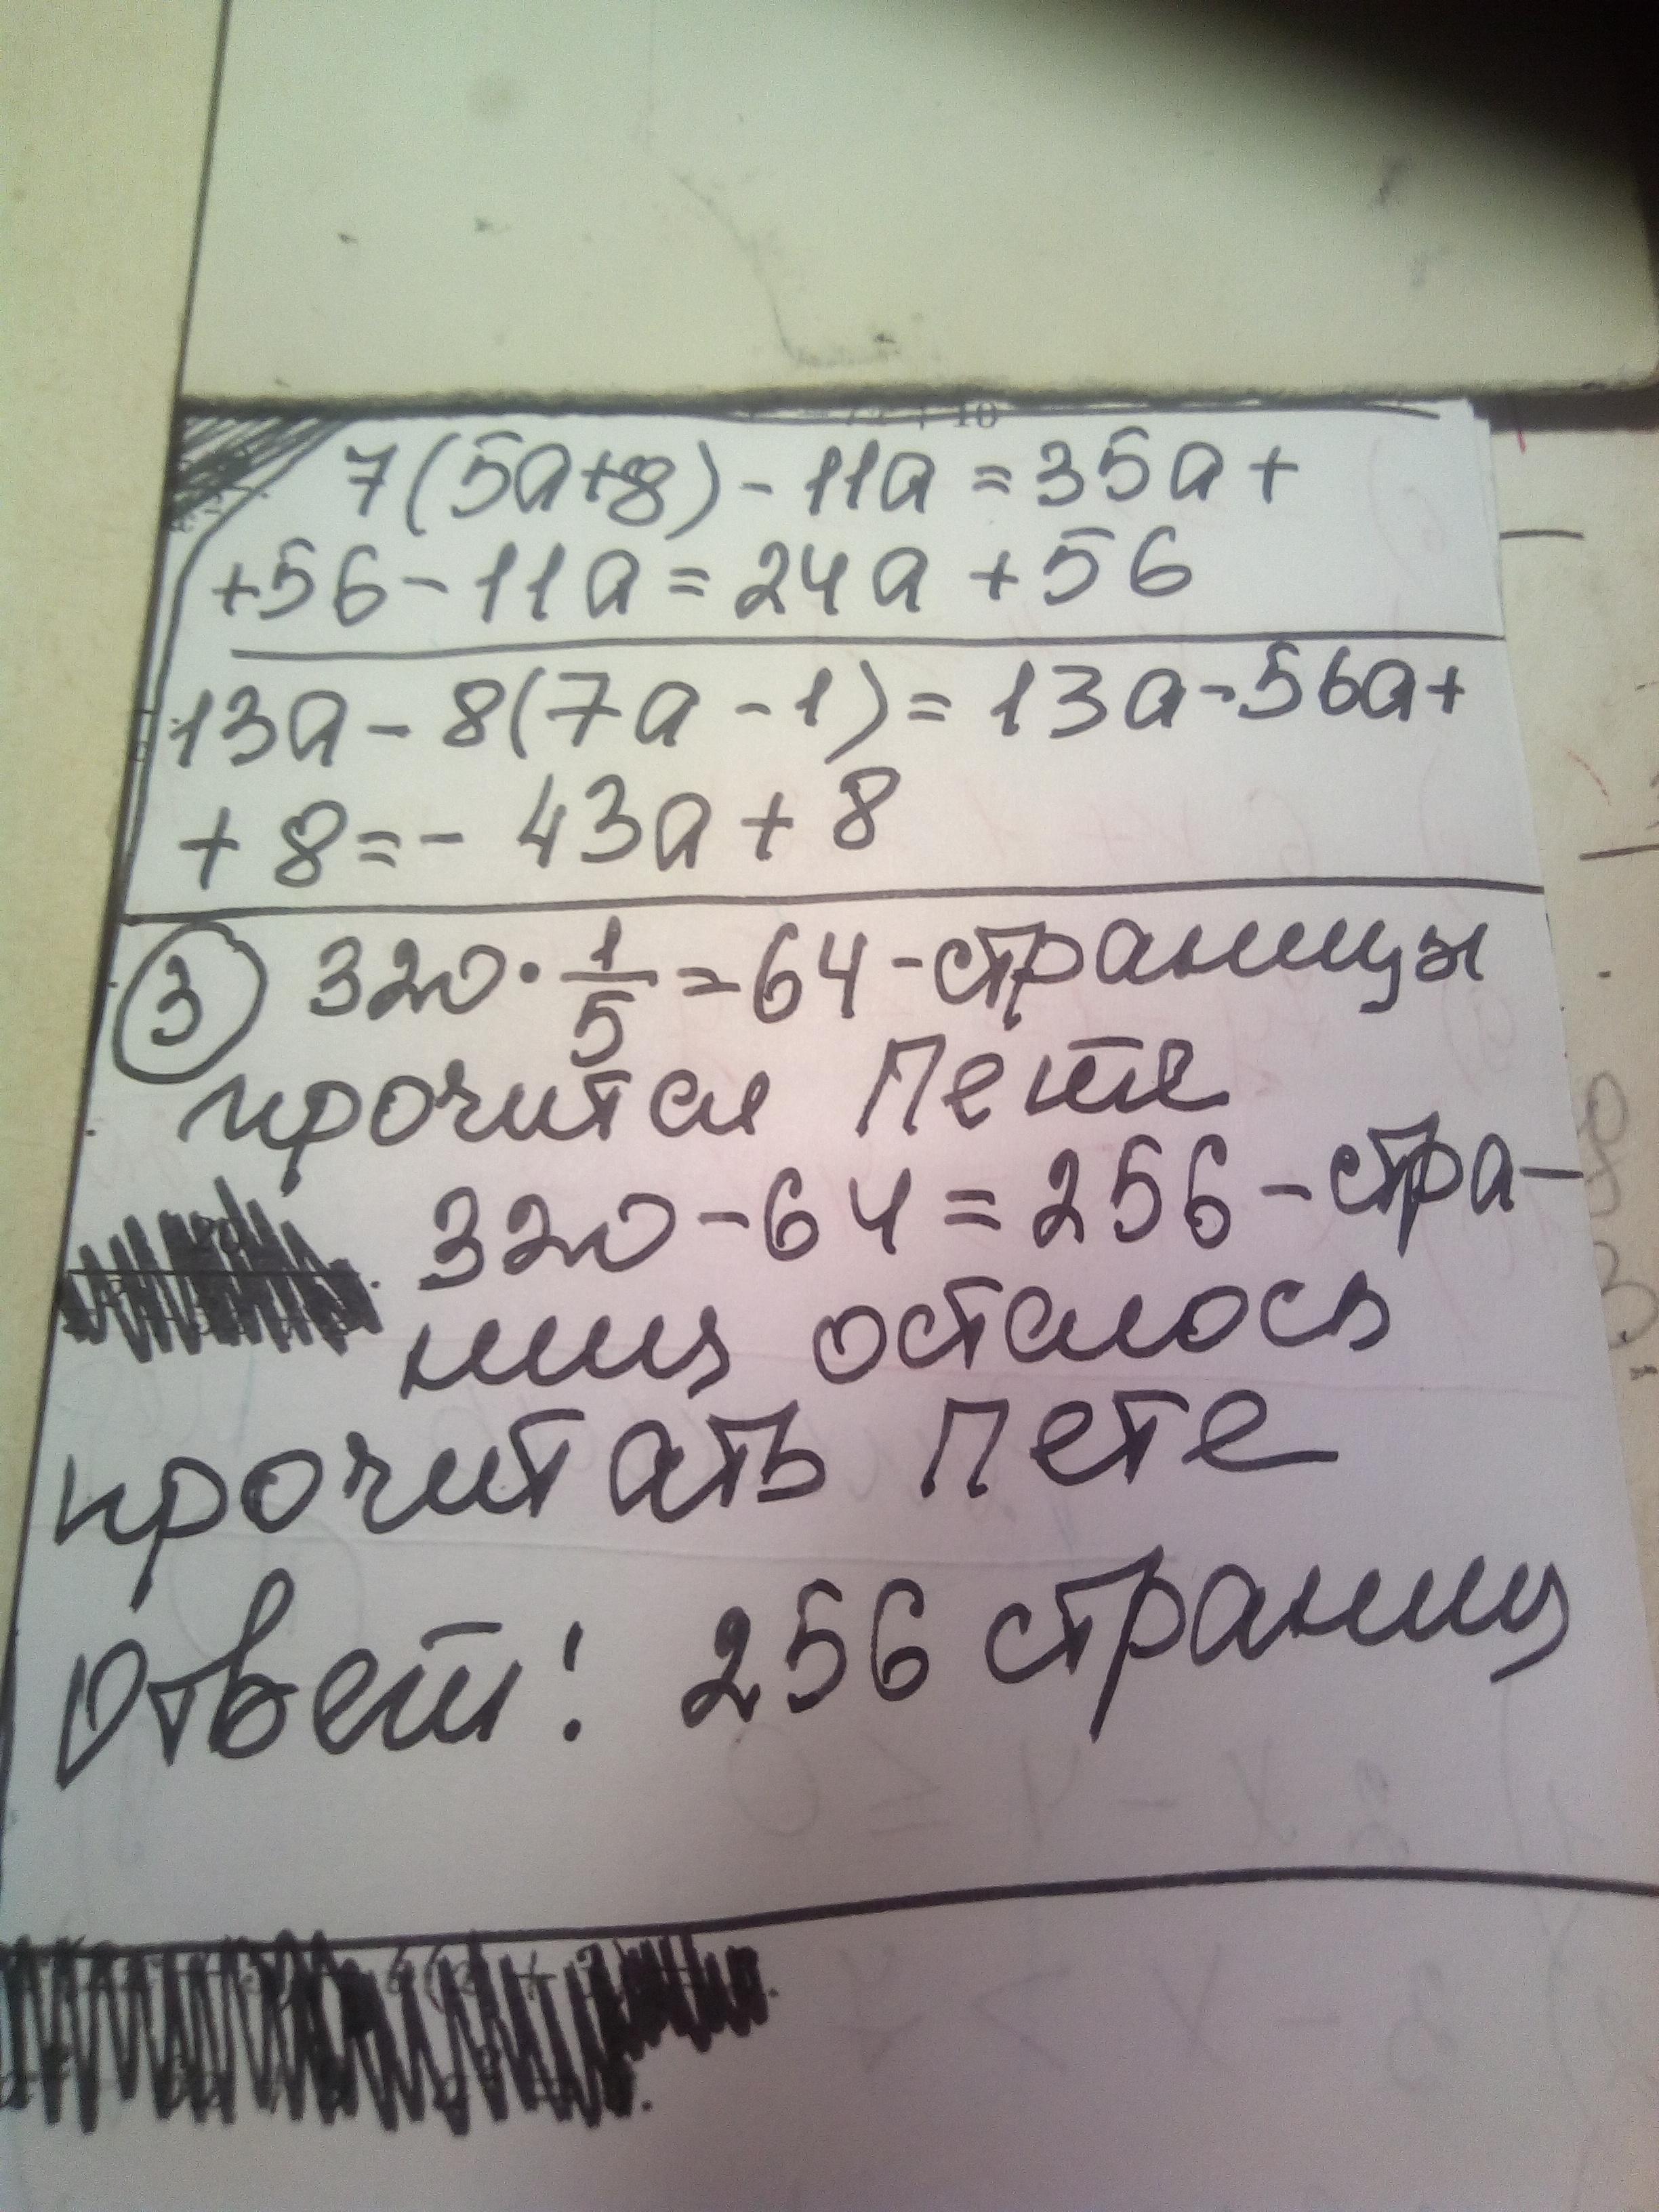 7(5a+8)-11a=35a+
+56-11a=24a+56
13a-8(7a-1)=13a-56a+
+8=-43a+8
3 320·1/5=64-страницы
прочитал Петя
320-64=256-стра-
ниц осталось
прочитать Пете
Ответ: 256 страниц